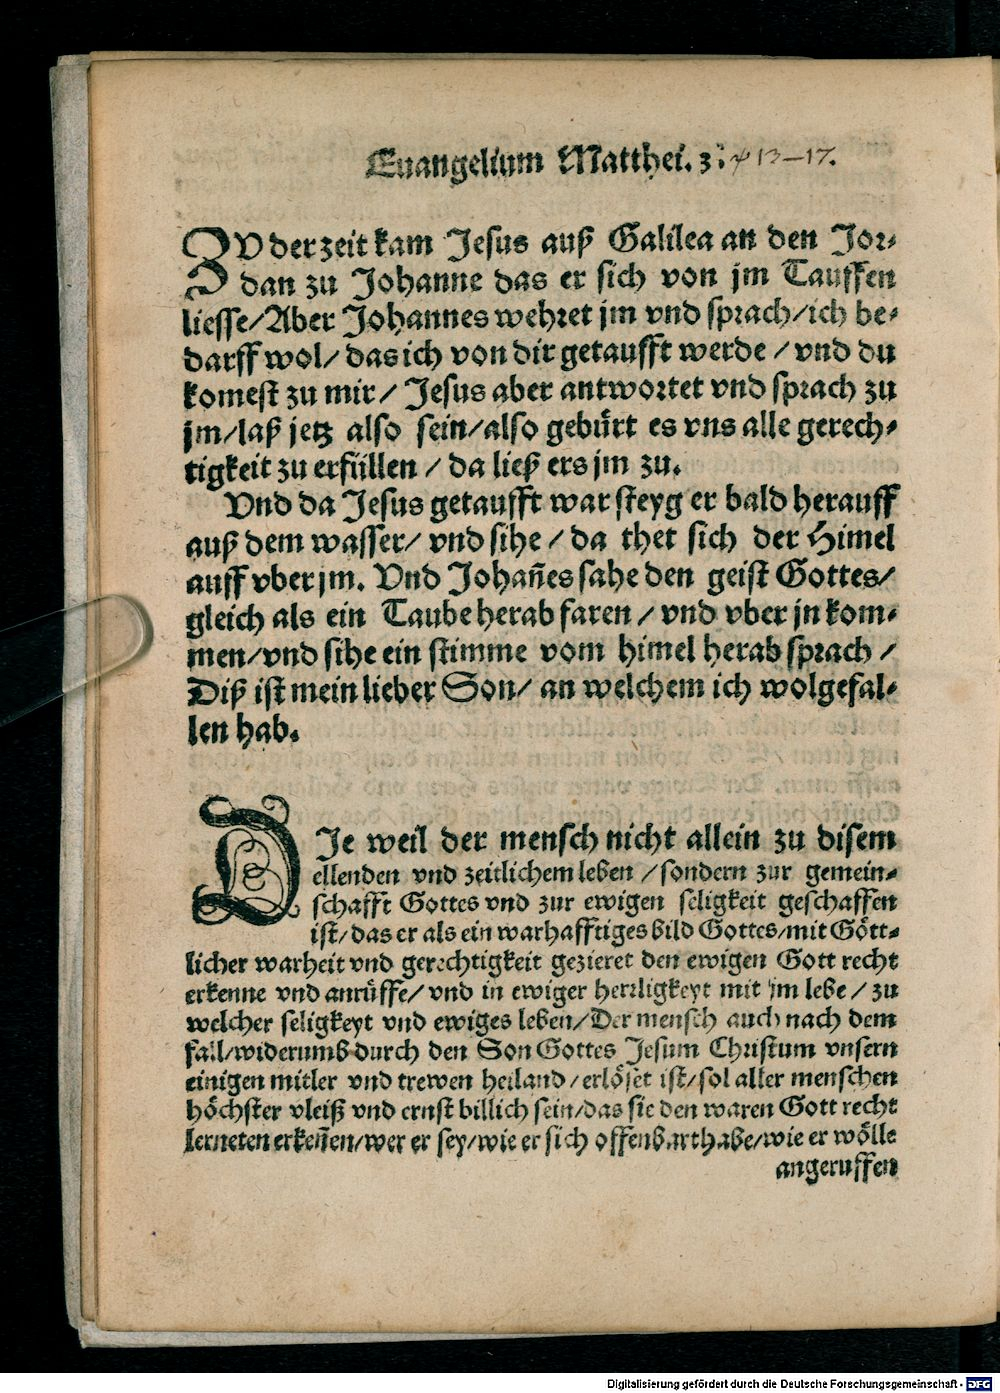 Euangelium Matthei. 3. 13–17.
ZV der zeit kam Jesus auß Galilea an den Jor⸗
dan zu Johanne das er sich von jm Tauffen
liesse/Aber Johannes wehret jm vnd sprach/ich be⸗
darff wol/ das ich von dir getaufft werde / vnd du
komest zu mir / Jesus aber antwortet vnd sprach zu
jm/laß jetz also sein/also gebürt es vns alle gerech⸗
tigkeit zu erfüllen / da ließ ers jm zu.
Vnd da Jesus getaufft war steyg er bald herauff
auß dem wasser/ vnd sihe / da thet sich der Himel
auff vber jm. Vnd Johañes sahe den geist Gottes/
gleich als ein Taube herab faren / vnd vber jn kom⸗
men/vnd sihe ein stimme vom himel herab sprach /
Diß ist mein lieber Son/ an welchem ich wolgefal⸗
len hab.
DJe weil der mensch nicht allein zu disem
ellenden vnd zeitlichem leben / sondern zur gemein⸗
schafft Gottes vnd zur ewigen seligkeit geschaffen
ist/ das er als ein warhafftiges bild Gottes/mit Gött⸗
licher warheit vnd gerechtigkeit gezieret den ewigen Gott recht
erkenne vnd anrüffe/ vnd in ewiger herrligkeyt mit jm lebe / zu
welcher seligkeyt vnd ewiges leben/ Der mensch auch nach dem
fall/widerumb durch den Son Gottes Jesum Christum vnsern
einigen mitler vnd trewen heiland / erlöset ist/ sol aller menschen
höchster vleiß vnd ernst billich sein/das sie den waren Gott recht
lerneten erkeñen/wer er sey/wie er sich offenbart habe/wie er wölle
angeruffen
Digitalisierung gefördert durch die Deutsche Forschungsgemeinschaft - DFG